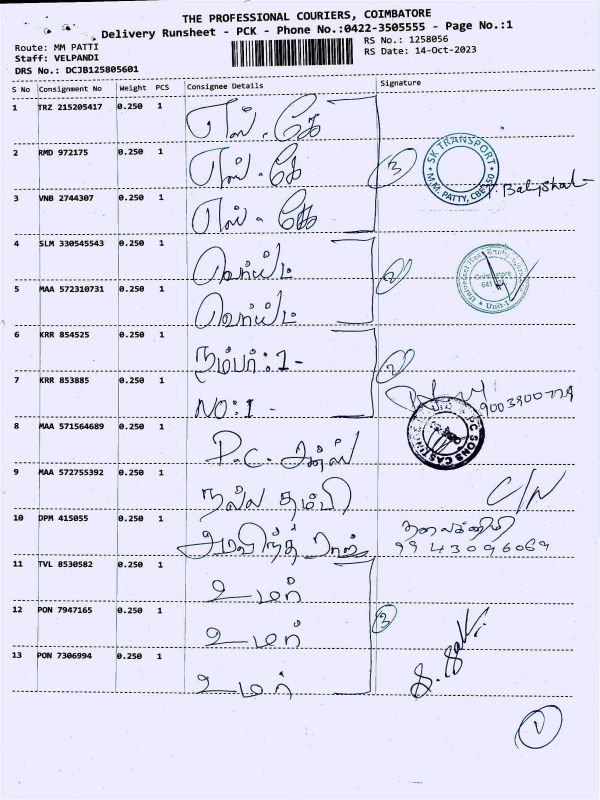 THE PROFESSIONAL COURIERS, COIMBATORE
Delivery Runsheet - PCK - Phone No.:0422-3505555 - Page No.:1
Route: MM PATTI
Staff: VELPANDI
DRS No.: DCJB125805601
RS No.: 1258056
RS Date: 14-Oct-2023
S No Consignment No Weight PCS Consignee Details Signature
1 TRZ 215205417 0.250 1 எஸ். கே
2 RMD 972175 0.250 1 எஸ். கே
3 VNB 2744307 0.250 1 எஸ். கே
3
SK TRANSPORT
M.M. PATTY, CBE-50
4 SLM 330545543 0.250 1
5 MAA 572310731 0.250 1
2
Unit-I
6 KRR 854525 0.250 1 நம்பர்:1-
7 KRR 853885 0.250 1 NO:1-
2
9003900779
8 MAA 571564689 0.250 1 P.C. சன்ஸ்
PC SONS CASTING
9 MAA 572755392 0.250 1 நல்ல தம்பி
C/N
10 DPM 415055 0.250 1 அரவிந்த்
9943096069
11 TVL 8530582 0.250 1 உமர்
12 PON 7947165 0.250 1 உமர்
3
13 PON 7306994 0.250 1 உமர்